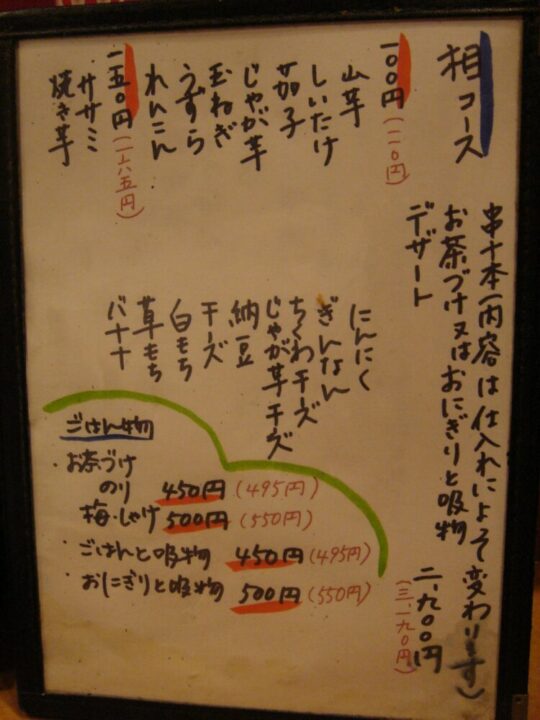 相コース
串十本(内容は仕入れによって変わります)
お茶づけ又はおにぎりと吸物
デザート
二、九〇〇円
(三、一九〇円)
一〇〇円
(一一〇円)
山芋
しいたけ
茄子
じゃが芋
玉ねぎ
うずら
れんこん
一五〇円
(一六五円)
ササミ
焼き芋
にんにく
ぎんなん
ちくわチーズ
じゃが芋チーズ
納豆
チーズ
白もち
草もち
バナナ
ごはん物
・お茶づけ
のり 450円(495円)
梅・しゃけ 500円(550円)
・ごはんと吸物 450円(495円)
・おにぎりと吸物 500円(550円)